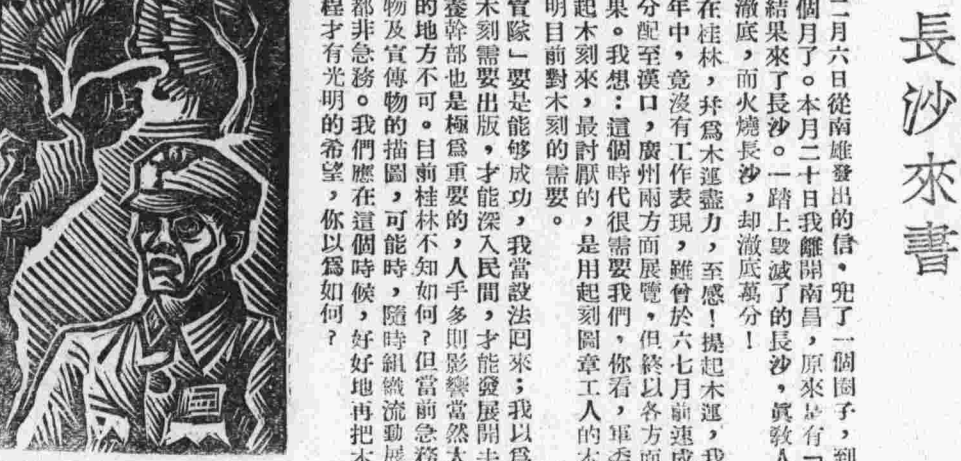 長沙來書
二月六日從南雄發出的信，兜了一個圈子，到
個月了。本月二十日我離開南昌，原來是有「
結果來了長沙。一踏上毀滅了的長沙，眞敎人
澈底，而火燒長沙，却澈底萬分！
在桂林，幷爲木運盡力，至感！提起木運，我
年中，竟沒有工作表現，雖曾於六七月前速成
分配至漢口，廣州兩方面展覽，但終以各方面
果。我想：這個時代很需要我們，你看，軍委
起木刻來，最討厭的，是用起刻圖章工人的木
明目前對木刻的需要。
宣隊」要是能够成功，我當設法囘來；我以爲
木刻需要出版，才能深入民間，才能發展開去
養幹部也是極爲重要的，人手多則影響當然大
的地方不可。目前桂林不知如何？但當前急務
物及宣傳物的描圖，可能時，隨時組織流動展
都非急務。我們應在這個時候，好好地再把木
程才有光明的希望，你以爲如何？